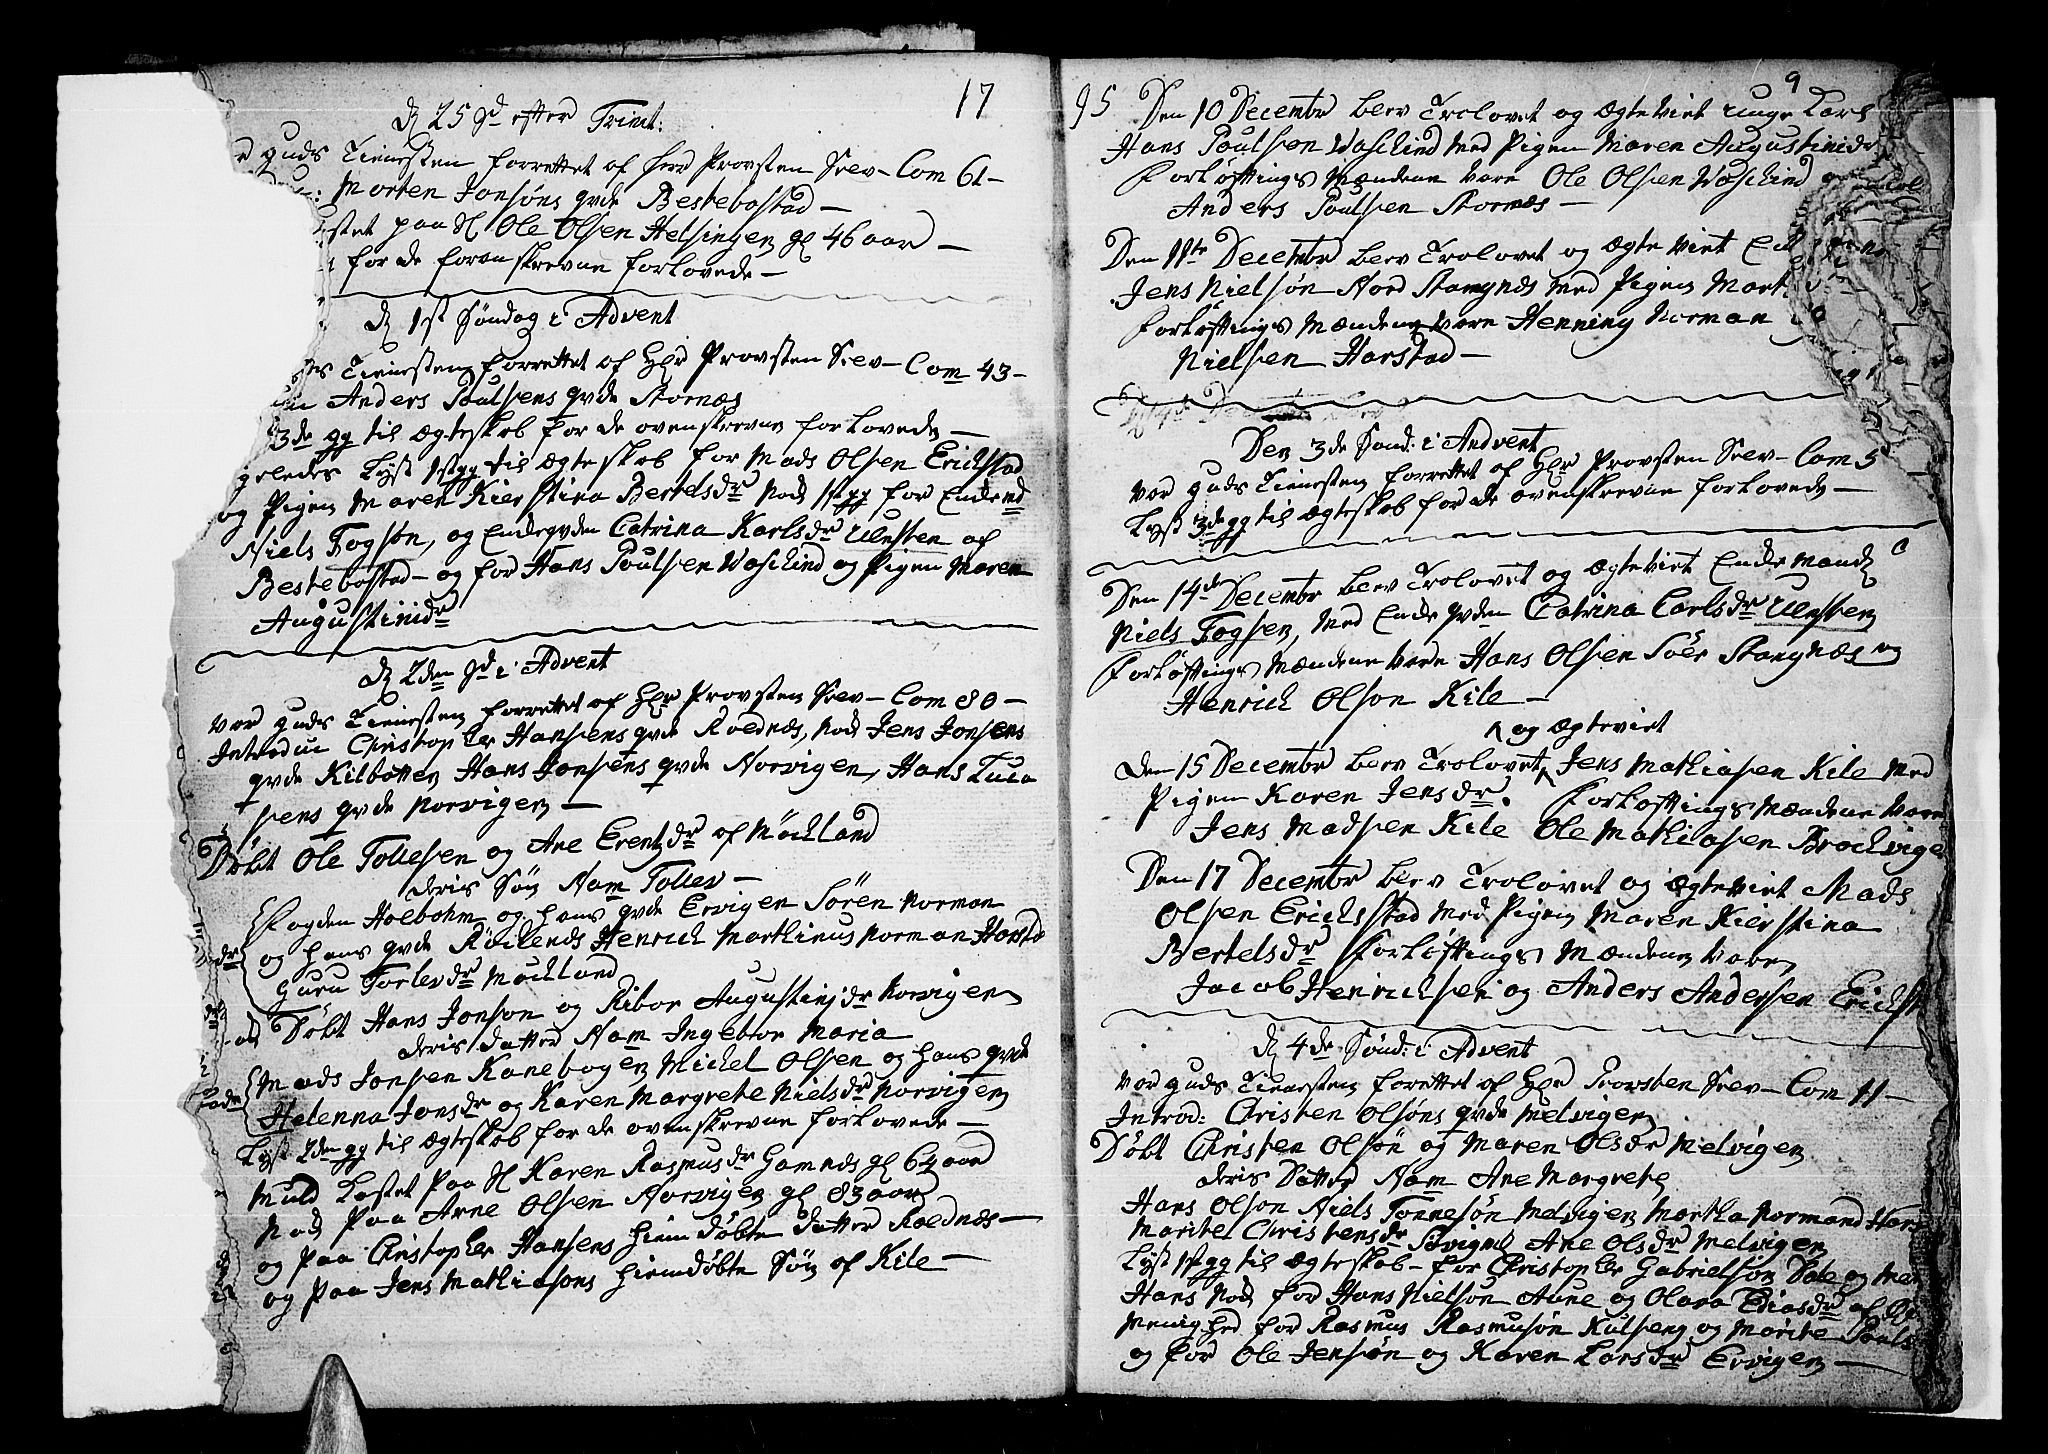 17
D 25 Sd efter Trinit:
Guds Tienesten forrettet af Herr Provsten Srev - Com 61 -
Morten Jonsøns qvde Bestebostad -
paa Sl Ole Olsen Helsingen gl 46 aar -
for de foranskrevne forlovede -
D 1st Søndag i Advent
Tienesten forrettet af Hr Provsten Srev - Com 43 -
Anders Poulsens qvde Stornæs
3de gg til Ægteskab for de ovenskrevne forlovede -
Lyst 1st gg til Ægteskab for Mads Olsen Erichstad
og Pigen Maren Kierstina Bertelsdr Nok 1st gg for Enkemd
Niels Fogsøn, og Enkeqvden Catrina Karlsdr Uensten af
Bestebostad - og for Hans Poulsen Vaskind og Pigen Maren
Augustinidr
D 2den Sd i Advent
Vor Guds Tienesten forrettet af Hr Provsten Srev - Com 80 -
Introdu Christopher Hansens qvde Roednæs, Nok Jens Jonsens
qvde Kilbotten Hans Jonsens qvde Norvigen, Hans Luca
sens qvde Norvigen -
Døbt Ole Tollefsen og Ane Erentzdr af Møchland
deris Søn Nam Tollev -
Fogden Holbohm og hans qvde Ervigen Søren Norman
og hans qvde Røchenæs Henrich Marthinus Norman Harsta
Guru Torlevdr Møchland
Døbt Hans Jonson og Ribor Augustinjdr Norvigen
deris datter Nam Ingebor Maria
Mads Jonsen Kanebogen Michel Olsen og hans qvde
Helenna Jonsdr og Karen Margrete Nielsdr Norvigen
Lyst 2den gg til Ægteskab for de ovenskrevne forlovede -
Muld Kastet paa Sl Karen Rasmusdr Gamnæs gl 64 aar
Nok paa Arne Olsen Norvigen gl 83 aar
og paa Christopher Hansens hiemdøbte datter Roednæs -
og paa Jens Mathiasons hiemdøbte Søn af Kile -
95
9
Den 10 Decembr blev Trolovet og Ægteviet unge Karl
Hans Poulsen Vaskind med Pigen Maren Augustinidr
Forløftings Mændene vare Ole Olsen Vaskind
Anders Poulsen Stornæs -
Den 11te Decembr blev Trolovet og Ægteviet
Jens Nielsøn Nord Stangnæs med Pigen
Forløftings Mændene vare Henning Norman
Nielsen Harstad -
Den 3de Sønd: i Andvent
Vor Guds Tienesten forrettet af Hr Provsten Srev - Com 5
Lyst 3de gg til Ægteskab for de ovenskrevne forlovede -
Den 14de Decembr blev Trolovet og Ægteviet Enkemand
Niels Fogsen, med Enkeqvden Catrina Carlsdr Uensten
Forløftings Mændene vare Hans Olsen Sør Stangnæs og
Henrich Olson Kile -
og Ægteviet
Den 15 Decembr blev Trolovet Jens Mathiasen Kile med
Pigen Karen Jensdr. Forløftings Mændene vare
Jens Madsen Kile Ole Mathiasen Brochvigen
Den 17 Decembr blev Trolovet og Ægteviet Mads
Olsen Erichsstad med Pigen Maren Kierstina
Bertelsdr Forløftings Mændene vare
Jacob Henrichsen og Anders Andersen Erichst
D 4de Sønd: i Advent
Vor Guds Tienesten forrettet af Hr Provsten Srev - Com 11 -
Introd: Christen Olsøns qvde Melvigen
Døbt Christen Olsøn og Maren Olsdr Melvigen
deris Datter Nam Ane Margrete
Hans Olson Niels Tønnesøn Melvigen Martha Normand Hars
Maritel Christensdr Ane Olsdr Melvigen
Lyst 1st gg til Ægteskab - for Christopher Gabrielson Dale og
Hans Nok for Hans Nielsøn Aune og Olava Ediasdr af
Menighed for Rasmus Rasmusøn Kulseng og Marite Poels
og for Ole Jensøn og Karen Larsdr Ervigen -